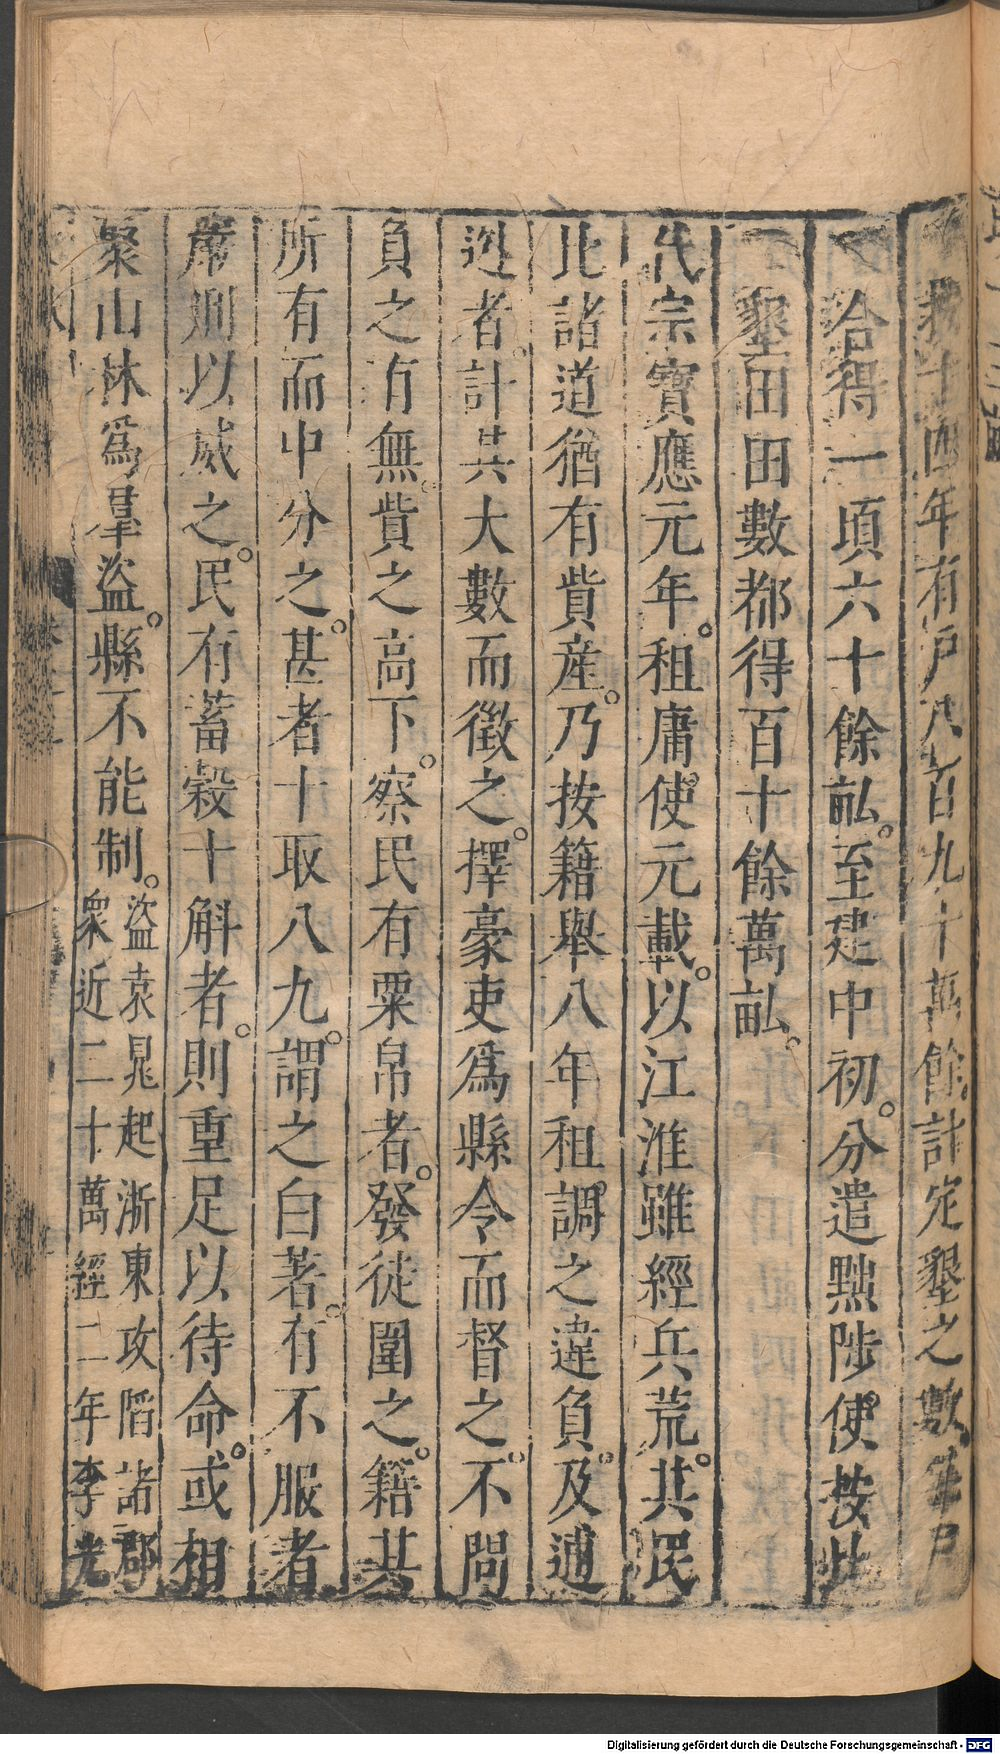 按十四年有戶八百九十萬餘。計定墾之數每戶
合得一頃六十餘畝。至建中初。分遣黜陟使按此
墾田田數都得百十餘萬畝。
代宗寶應元年。租庸使元載。以江淮雖經兵荒。其民
比諸道猶有貲產。乃按籍舉八年租調之違負。及逋
逃者。計其大數而徵之。擇豪吏為縣令而督之。不問
負之有無。貲之高下。察民有粟帛者。發徒圍之。籍其
所有而中分之。甚者十取八九。謂之白著。有不服者
嚴刑以威之。民有蓄穀十斛者。則重足以待命。或相
聚山林為羣盜。縣不能制。
盜袁晁起浙東攻陷諸郡
衆近二十萬經二年李光
Digitalisierung gefördert durch die Deutsche Forschungsgemeinschaft - DFG